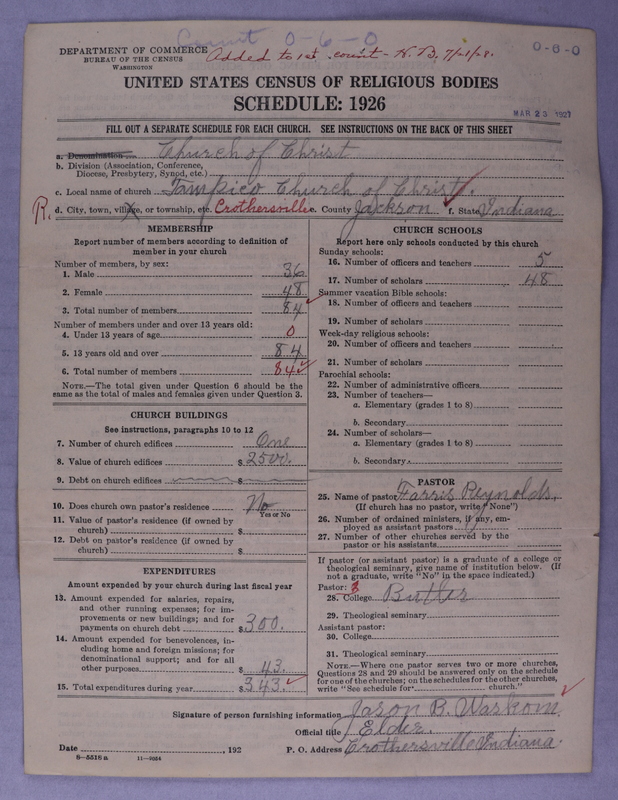 Count 0-6-0
DEPARTMENT OF COMMERCE
BUREAU OF THE CENSUS
WASHINGTON
Added to 1st count - H.B. 7/21/28.
0-6-0
UNITED STATES CENSUS OF RELIGIOUS BODIES
SCHEDULE: 1926
MAR 23 1927
FILL OUT A SEPARATE SCHEDULE FOR EACH CHURCH. SEE INSTRUCTIONS ON THE BACK OF THIS SHEET
a. Denomination Church of Christ
b. Division (Association, Conference,
Diocese, Presbytery, Synod, etc.)
c. Local name of church Tampico Church of Christ.
R. d. City, town, village, or township, etc. Crothersville e. County Jackson f. State Indiana
MEMBERSHIP
Report number of members according to definition of
member in your church
Number of members, by sex:
1. Male 36
2. Female 48
3. Total number of members 84
Number of members under and over 13 years old:
4. Under 13 years of age 0
5. 13 years old and over 84
6. Total number of members 84
NOTE.—The total given under Question 6 should be the
same as the total of males and females given under Question 3.
CHURCH BUILDINGS
See instructions, paragraphs 10 to 12
7. Number of church edifices One
8. Value of church edifices $ 2500.
9. Debt on church edifices $
10. Does church own pastor's residence No
Yes or No
11. Value of pastor's residence (if owned by
church) $
12. Debt on pastor's residence (if owned by
church) $
EXPENDITURES
Amount expended by your church during last fiscal year
13. Amount expended for salaries, repairs,
and other running expenses; for im-
provements or new buildings; and for
payments on church debt $ 300.
14. Amount expended for benevolences, in-
cluding home and foreign missions; for
denominational support; and for all
other purposes $ 43.
15. Total expenditures during year $ 343.
CHURCH SCHOOLS
Report here only schools conducted by this church
Sunday schools:
16. Number of officers and teachers 5
17. Number of scholars 48
Summer vacation Bible schools:
18. Number of officers and teachers
19. Number of scholars
Week-day religious schools:
20. Number of officers and teachers
21. Number of scholars
Parochial schools:
22. Number of administrative officers
23. Number of teachers—
a. Elementary (grades 1 to 8)
b. Secondary
24. Number of scholars—
a. Elementary (grades 1 to 8)
b. Secondary
PASTOR
25. Name of pastor Farris Reynolds.
(If church has no pastor, write "None")
26. Number of ordained ministers, if any, em-
ployed as assistant pastors
27. Number of other churches served by the
pastor or his assistants
If pastor (or assistant pastor) is a graduate of a college or
theological seminary, give name of institution below. (If
not a graduate, write "No" in the space indicated.)
Pastor: 3
28. College Butler
29. Theological seminary
Assistant pastor:
30. College
31. Theological seminary
NOTE.—Where one pastor serves two or more churches,
Questions 28 and 29 should be answered only on the schedule
for one of the churches; on the schedules for the other churches,
write "See schedule for church."
Signature of person furnishing information Jason B. Waskom
Official title Elder.
Date , 192 P. O. Address Crothersville Indiana.
8-5518 a 11-9054